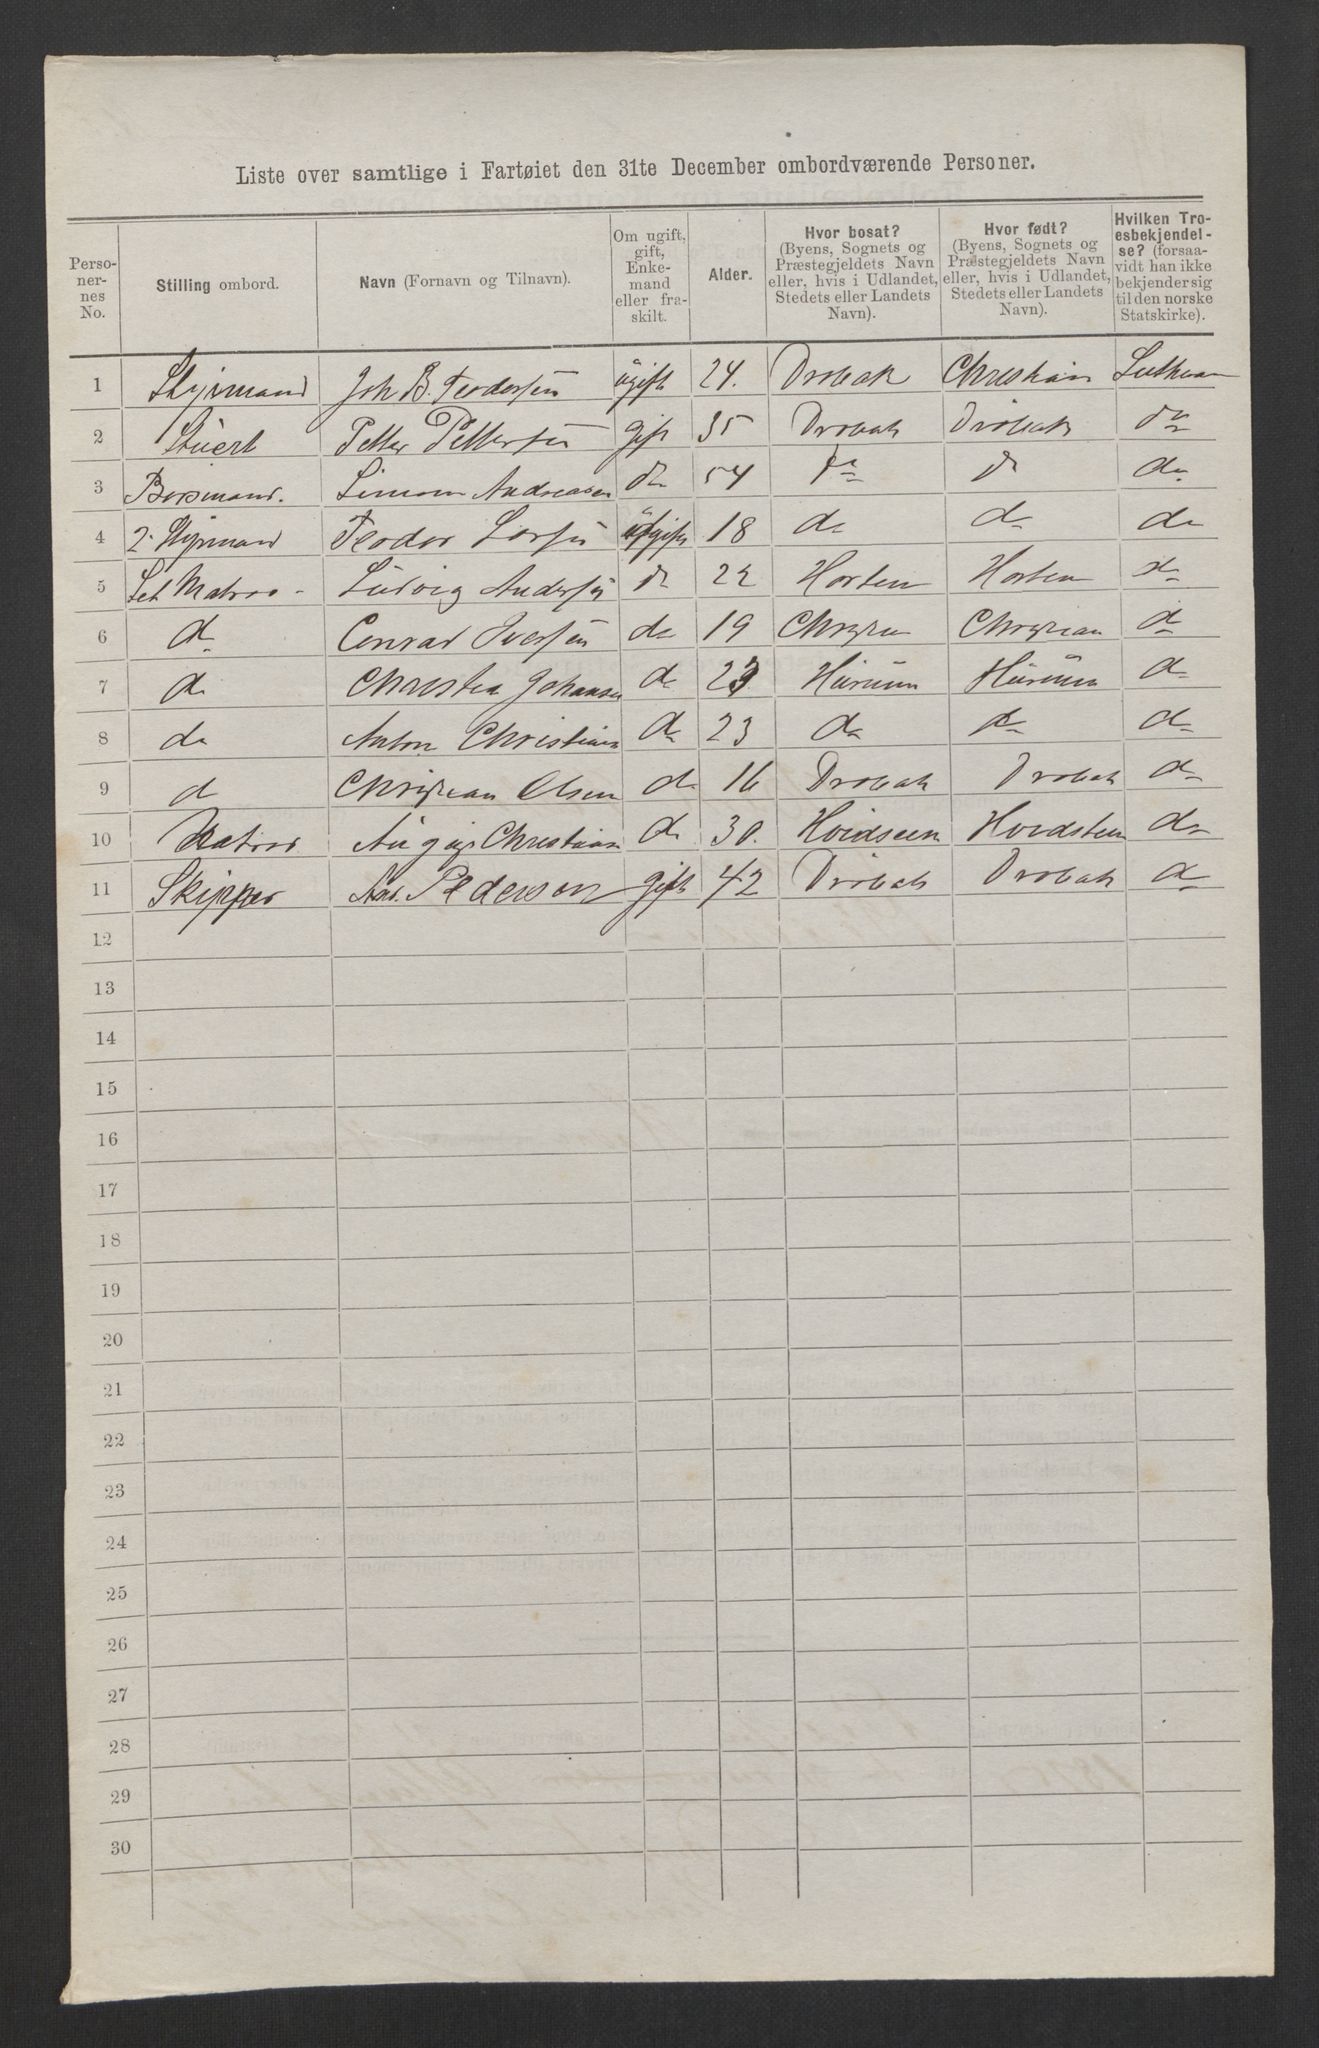 Liste over samtlige i Fartøiet den 31te December ombordværende Personer.
Perso-ner-nes No. | Stilling ombord. | Navn (Fornavn og Tilnavn). | Om ugift, gift, Enke-mand eller fra-skilt. | Alder. | Hvor bosat? (Byens, Sognets og Præstegjeldets Navn eller, hvis i Udlandet, Stedets eller Landets Navn). | Hvor født? (Byens, Sognets og Præstegjeldets Navn eller, hvis i Udlandet, Stedets eller Landets Navn). | Hvilken Tro-esbekjendel-se? (forsaa-vidt han ikke bekjender sig til den norske Statskirke).
1 Styrmand Joh B. Teodorsen ugift 24. Drobak Christian Luthean
2 Stuert Petter Pettersen gift 35 Drobak Drobak do
3 Bosmand. Simon Andreasen do 54 do do do
4 2. Styrmand Teodor Larsen ugift 18 do do do
5 Let Matros Ludvig Andersen do 22 Horten Horten do
6 do Conrad Iversen do 19 Christian do
7 do Christen Johansen do 23 Hurum Hurum do
8 do Anton Christians do 23 do do do
9 do Christian Olsen do 16 Drobak Drobak do
10 Matros August Christians do 30. Hvidsteen Hvidsteen do
11 Skipper And. Pederson gift 42 Drobak Drobak do
12
13
14
15
16
17
18
19
20
21
22
23
24
25
26
27
28
29
30